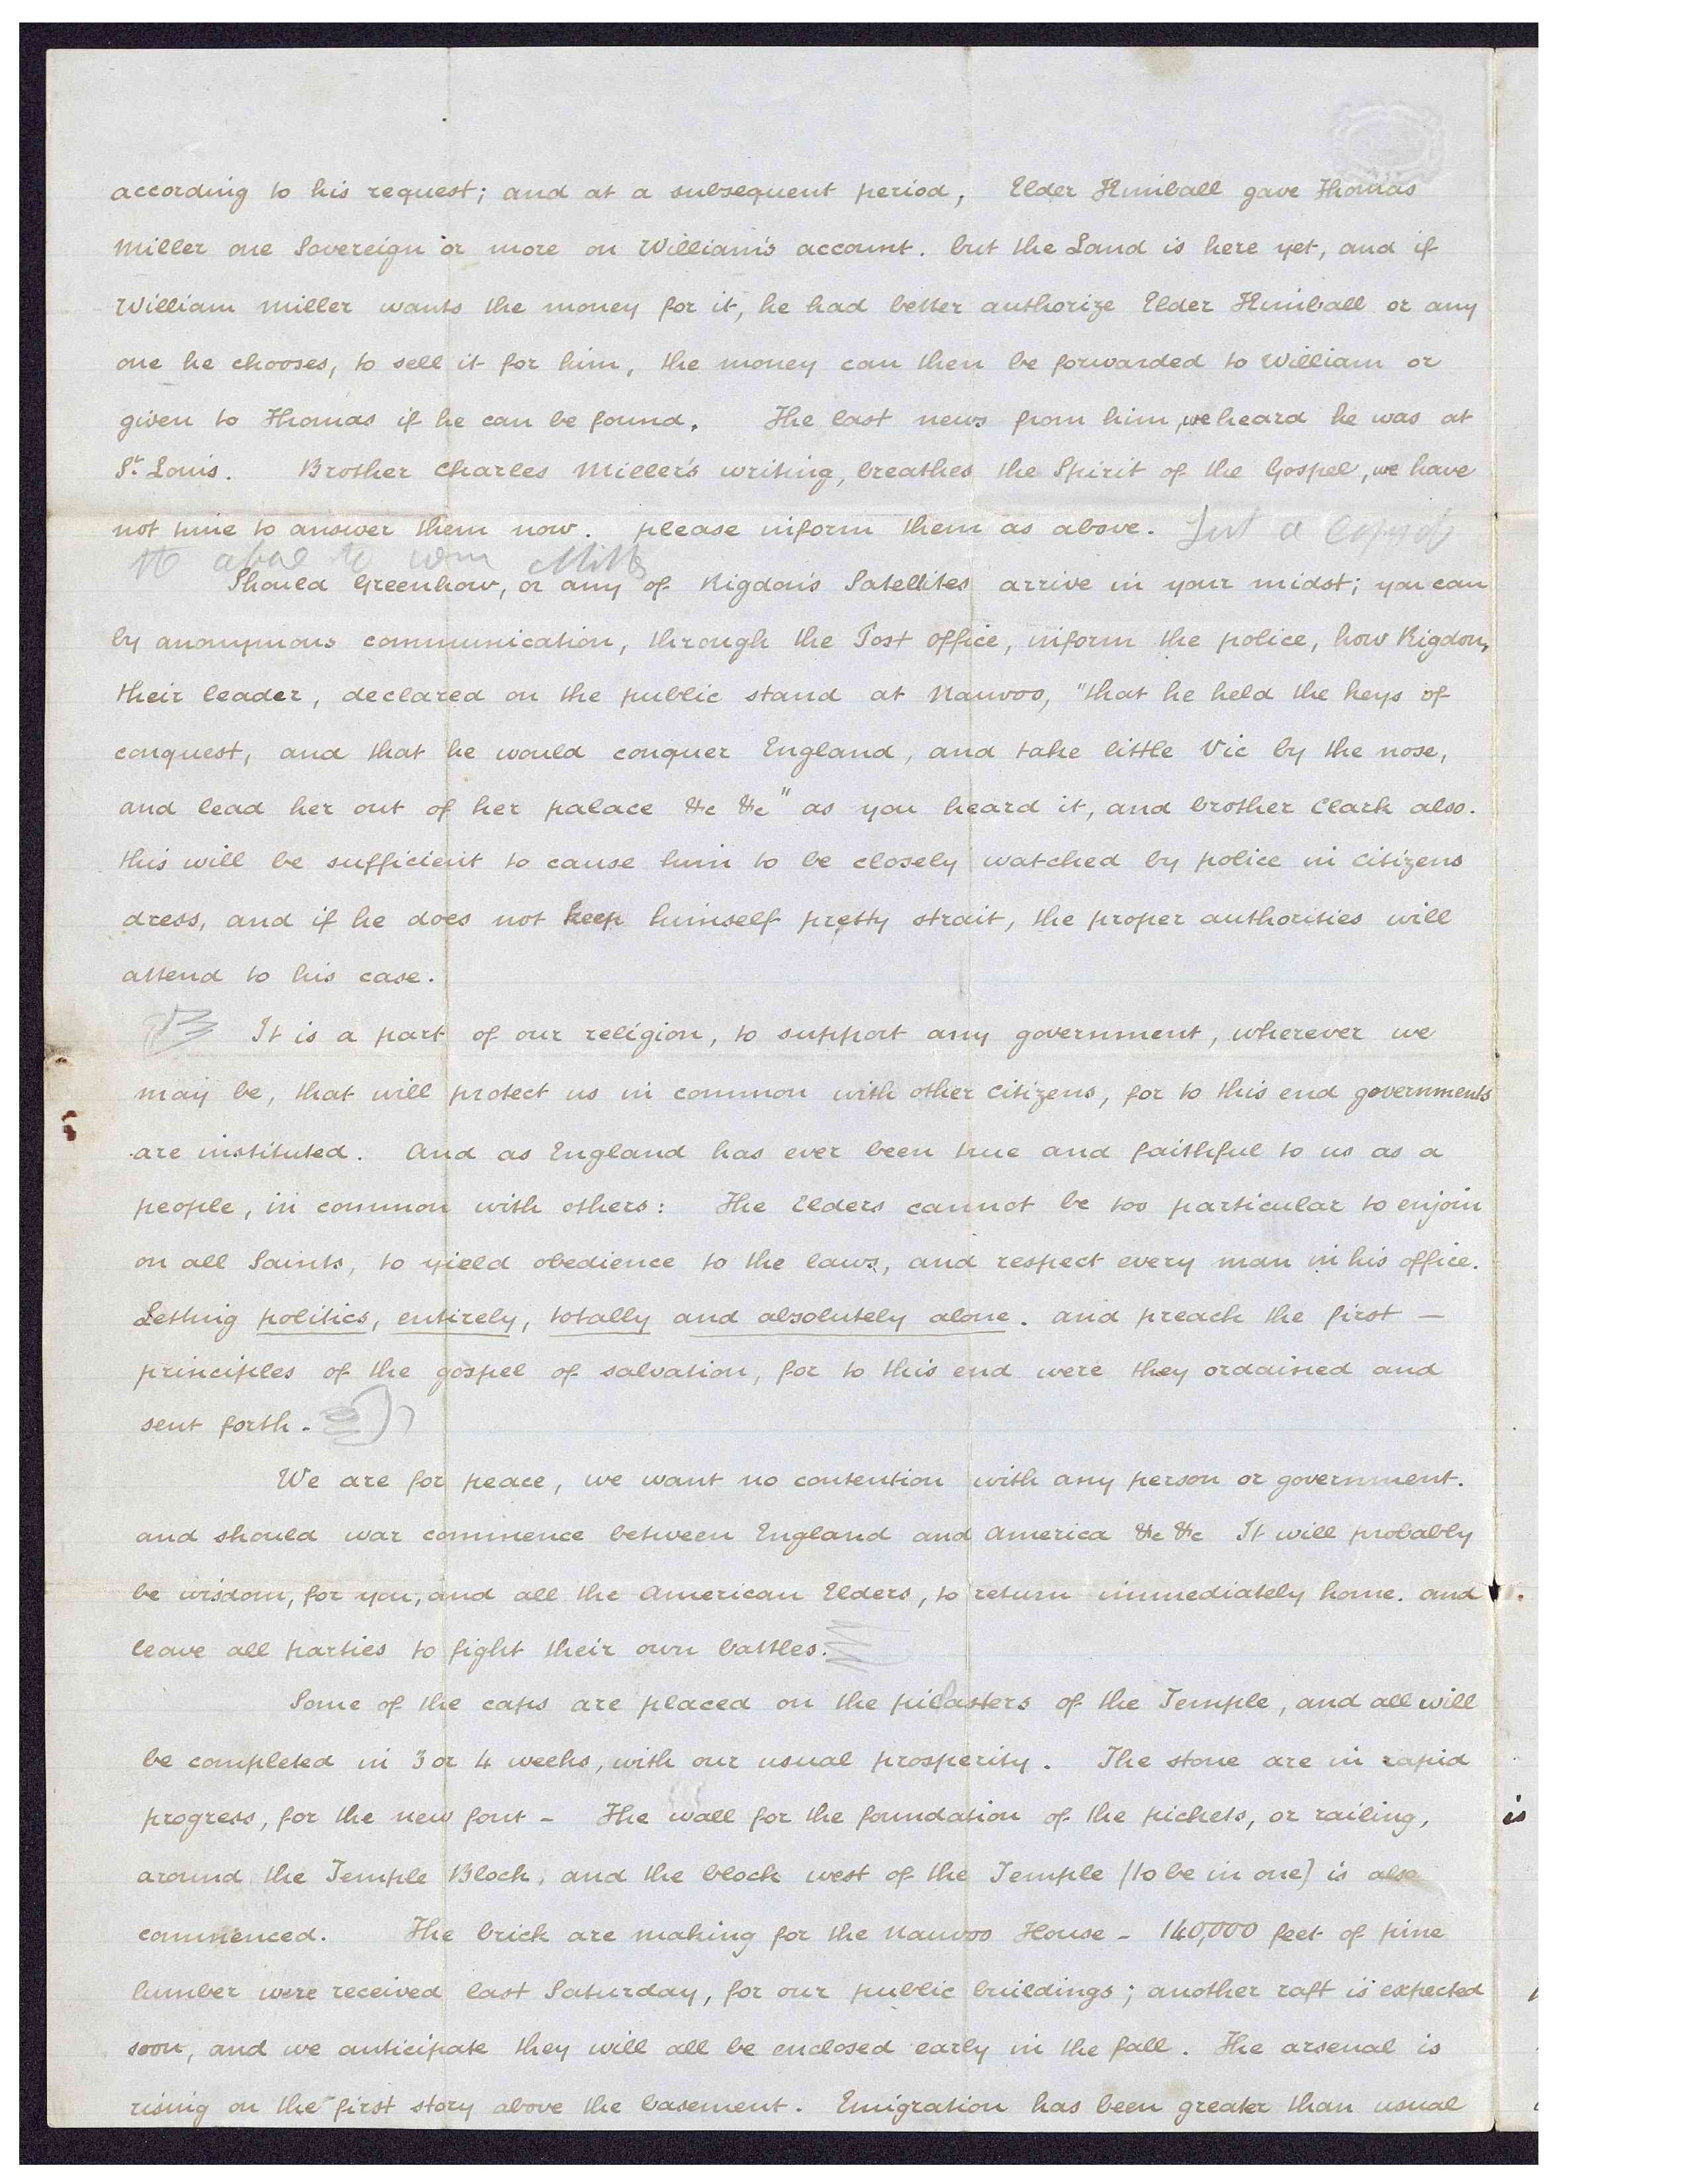 according to his request; and at a subsequent period, Elder Kimball gave Thomas
Miller one Sovereign or more on William's account. but the Land is here yet, and if
William Miller wants the money for it, he had better authorize Elder Kimball or any
one he chooses, to sell it for him, the money can then be forwarded to William or
given to Thomas if he can be found. The last news from him, we heard he was at
St. Louis. Brother Charles Miller's writing, breathes the Spirit of the Gospel, we have
not time to answer them now. please inform them as above. a copy of
the above to Wm
Should Greenhow, or any of Rigdon's Satellites arrive in your midst; you can
by anonymous communication, through the Post office, inform the police, how Rigdon,
their leader, declared on the public stand at Nauvoo, "that he held the keys of
conquest, and that he would conquer England, and take little Vic by the nose,
and lead her out of her palace &c &c" as you heard it, and brother Clark also.
this will be sufficient to cause him to be closely watched by police in citizens
dress, and if he does not keep himself pretty strait, the proper authorities will
attend to his case.
It is a part of our religion, to support any government, wherever we
may be, that will protect us in common with other citizens, for to this end governments
are instituted. And as England has ever been true and faithful to us as a
people, in common with others: The Elders cannot be too particular to enjoin
on all Saints, to yield obedience to the laws, and respect every man in his office.
Letting politics, entirely, totally and absolutely alone. and preach the first —
principles of the gospel of salvation, for to this end were they ordained and
sent forth.
We are for peace, we want no contention with any person or government.
and should war commence between England and America &c &c It will probably
be wisdom, for you, and all the American Elders, to return immediately home. and
leave all parties to fight their own battles.
Some of the caps are placed on the pilasters of the Temple, and all will
be completed in 3 or 4 weeks, with our usual prosperity. The stone are in rapid
progress, for the new font - The wall for the foundation of the pickets, or railing,
around the Temple Block, and the block west of the Temple [to be in one] is also
commenced. The brick are making for the Nauvoo House - 140,000 feet of pine
lumber were received last Saturday, for our public buildings; another raft is expected
soon, and we anticipate they will all be enclosed early in the fall. The arsenal is
rising on the first story above the basement. Emigration has been greater than usual
is